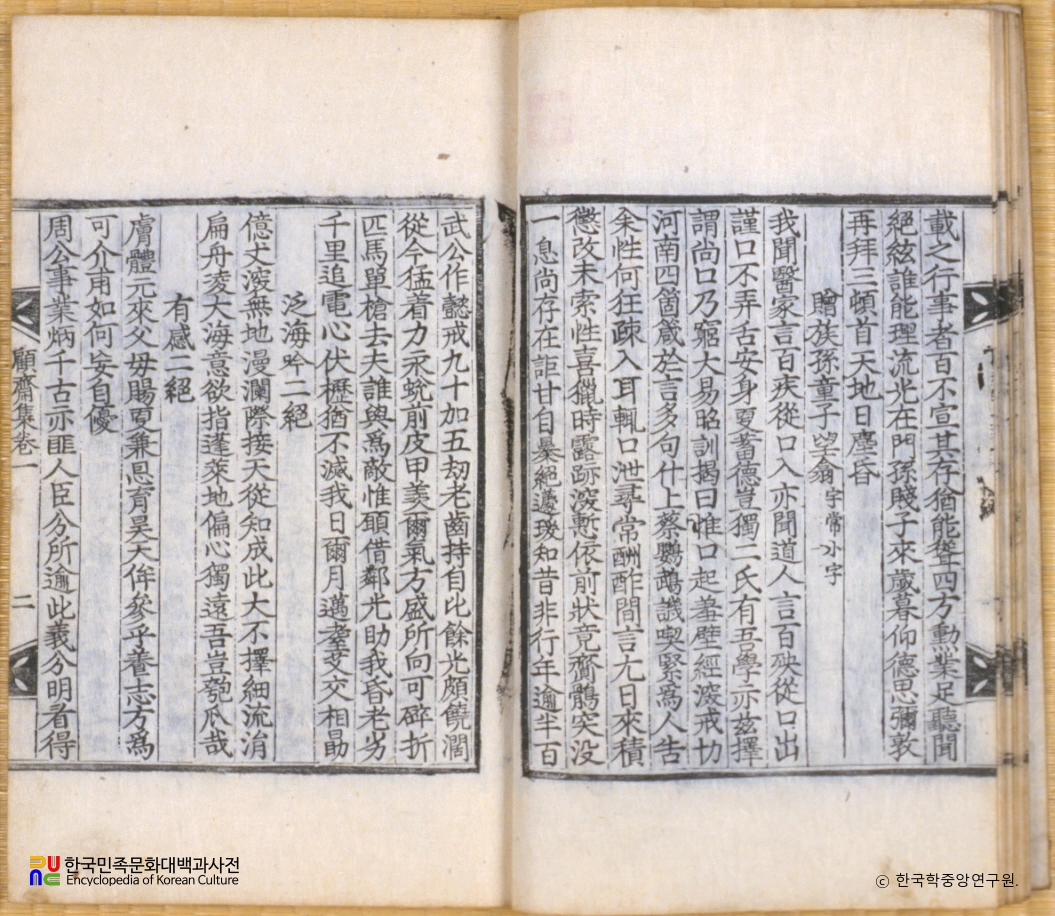 載之行事者百不宣其存猶能聳四方勳業足聽聞
絕絃誰能理流光在門孫賤子來歲暮仰德思彌敦
再拜三頓首天地日塵昏
贈族孫童子望翁字常小字
我聞醫家言百疾從口入亦聞道人言百殃從口出
謹口不弄舌安身夏蓄德豈獨二氏有吾學亦茲擇
謂尚口乃窮大易昭訓揭曰惟口起羞壁經深戒切
河南四箇箴於言多句什上蔡鸚鵡譏喫緊爲人告
余性何狂疎入耳輒口泄尋常酬酢間言尤日來積
懲改未索性喜獵時露跡深慙依前狀竟齎鶻突没
一息尚存在詎甘自暴絕蘧瑗知昔非行年逾半百
武公作懿戒九十加五刧老齒持自比餘光頗饒濶
從今猛着力永蛻前皮甲羡爾氣方盛所向可碎折
匹馬單槍去夫誰與爲敵惟願借鄰光助我昏老劣
千里追電心伏櫪猶不滅我日爾月邁蓼艾交相勗
泛海吟二絕
億丈深無地漫瀾際接天從知成此大不擇細流涓
扁舟凌大海意欲指蓬萊地偏心獨遠吾豈匏瓜哉
有感二絕
膚體元來父母賜夏兼恩育昊天侔參乎養志方爲
可介甫如何妄自優
周公事業炳千古亦匪人臣分所逾此義分明看得
顧齋集卷一
二
한국민족문화대백과사전
Encyclopedia of Korean Culture
ⓒ 한국학중앙연구원.